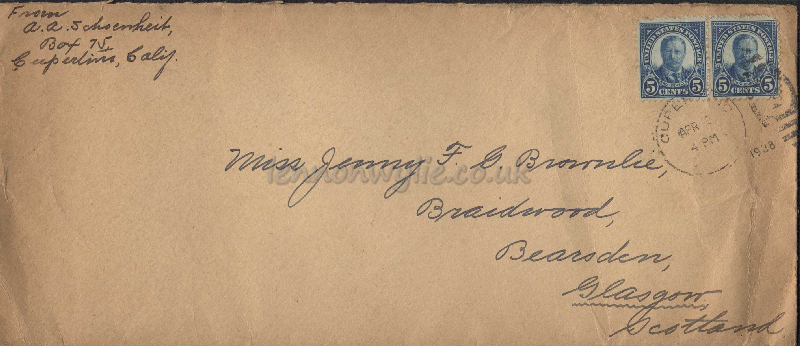 From
A. A. Schoenheit,
Box 75
Cupertino, Calif.
UNITED STATES POSTAGE
5 CENTS 5
UNITED STATES POSTAGE
5 CENTS 5
CUPERTINO
APR
4 PM
1938
Miss Jenny F. G. Brownlie,
lennonwylie.co.uk
Braidwood,
Bearsden,
Glasgow,
Scotland